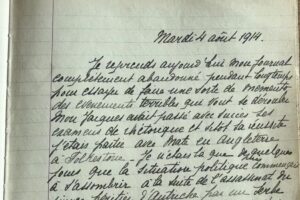 Mardi 4 août 1914.
Je reprends aujourd'hui mon journal
complètement abandonné pendant longtemps
pour essayer de faire une sorte de memento
des évènements terribles qui vont se dérouler
Mon Jacques avait passé avec succès ses
examens de rhétorique et sitôt sa réussite
j'étais partie avec en Angleterre
à Folkestone. Je n'étais là que quelques
jours que la situation politique commençait
à s'assombrir à la suite de l'assassinat du
prince héritier d'Autriche par un Serbe